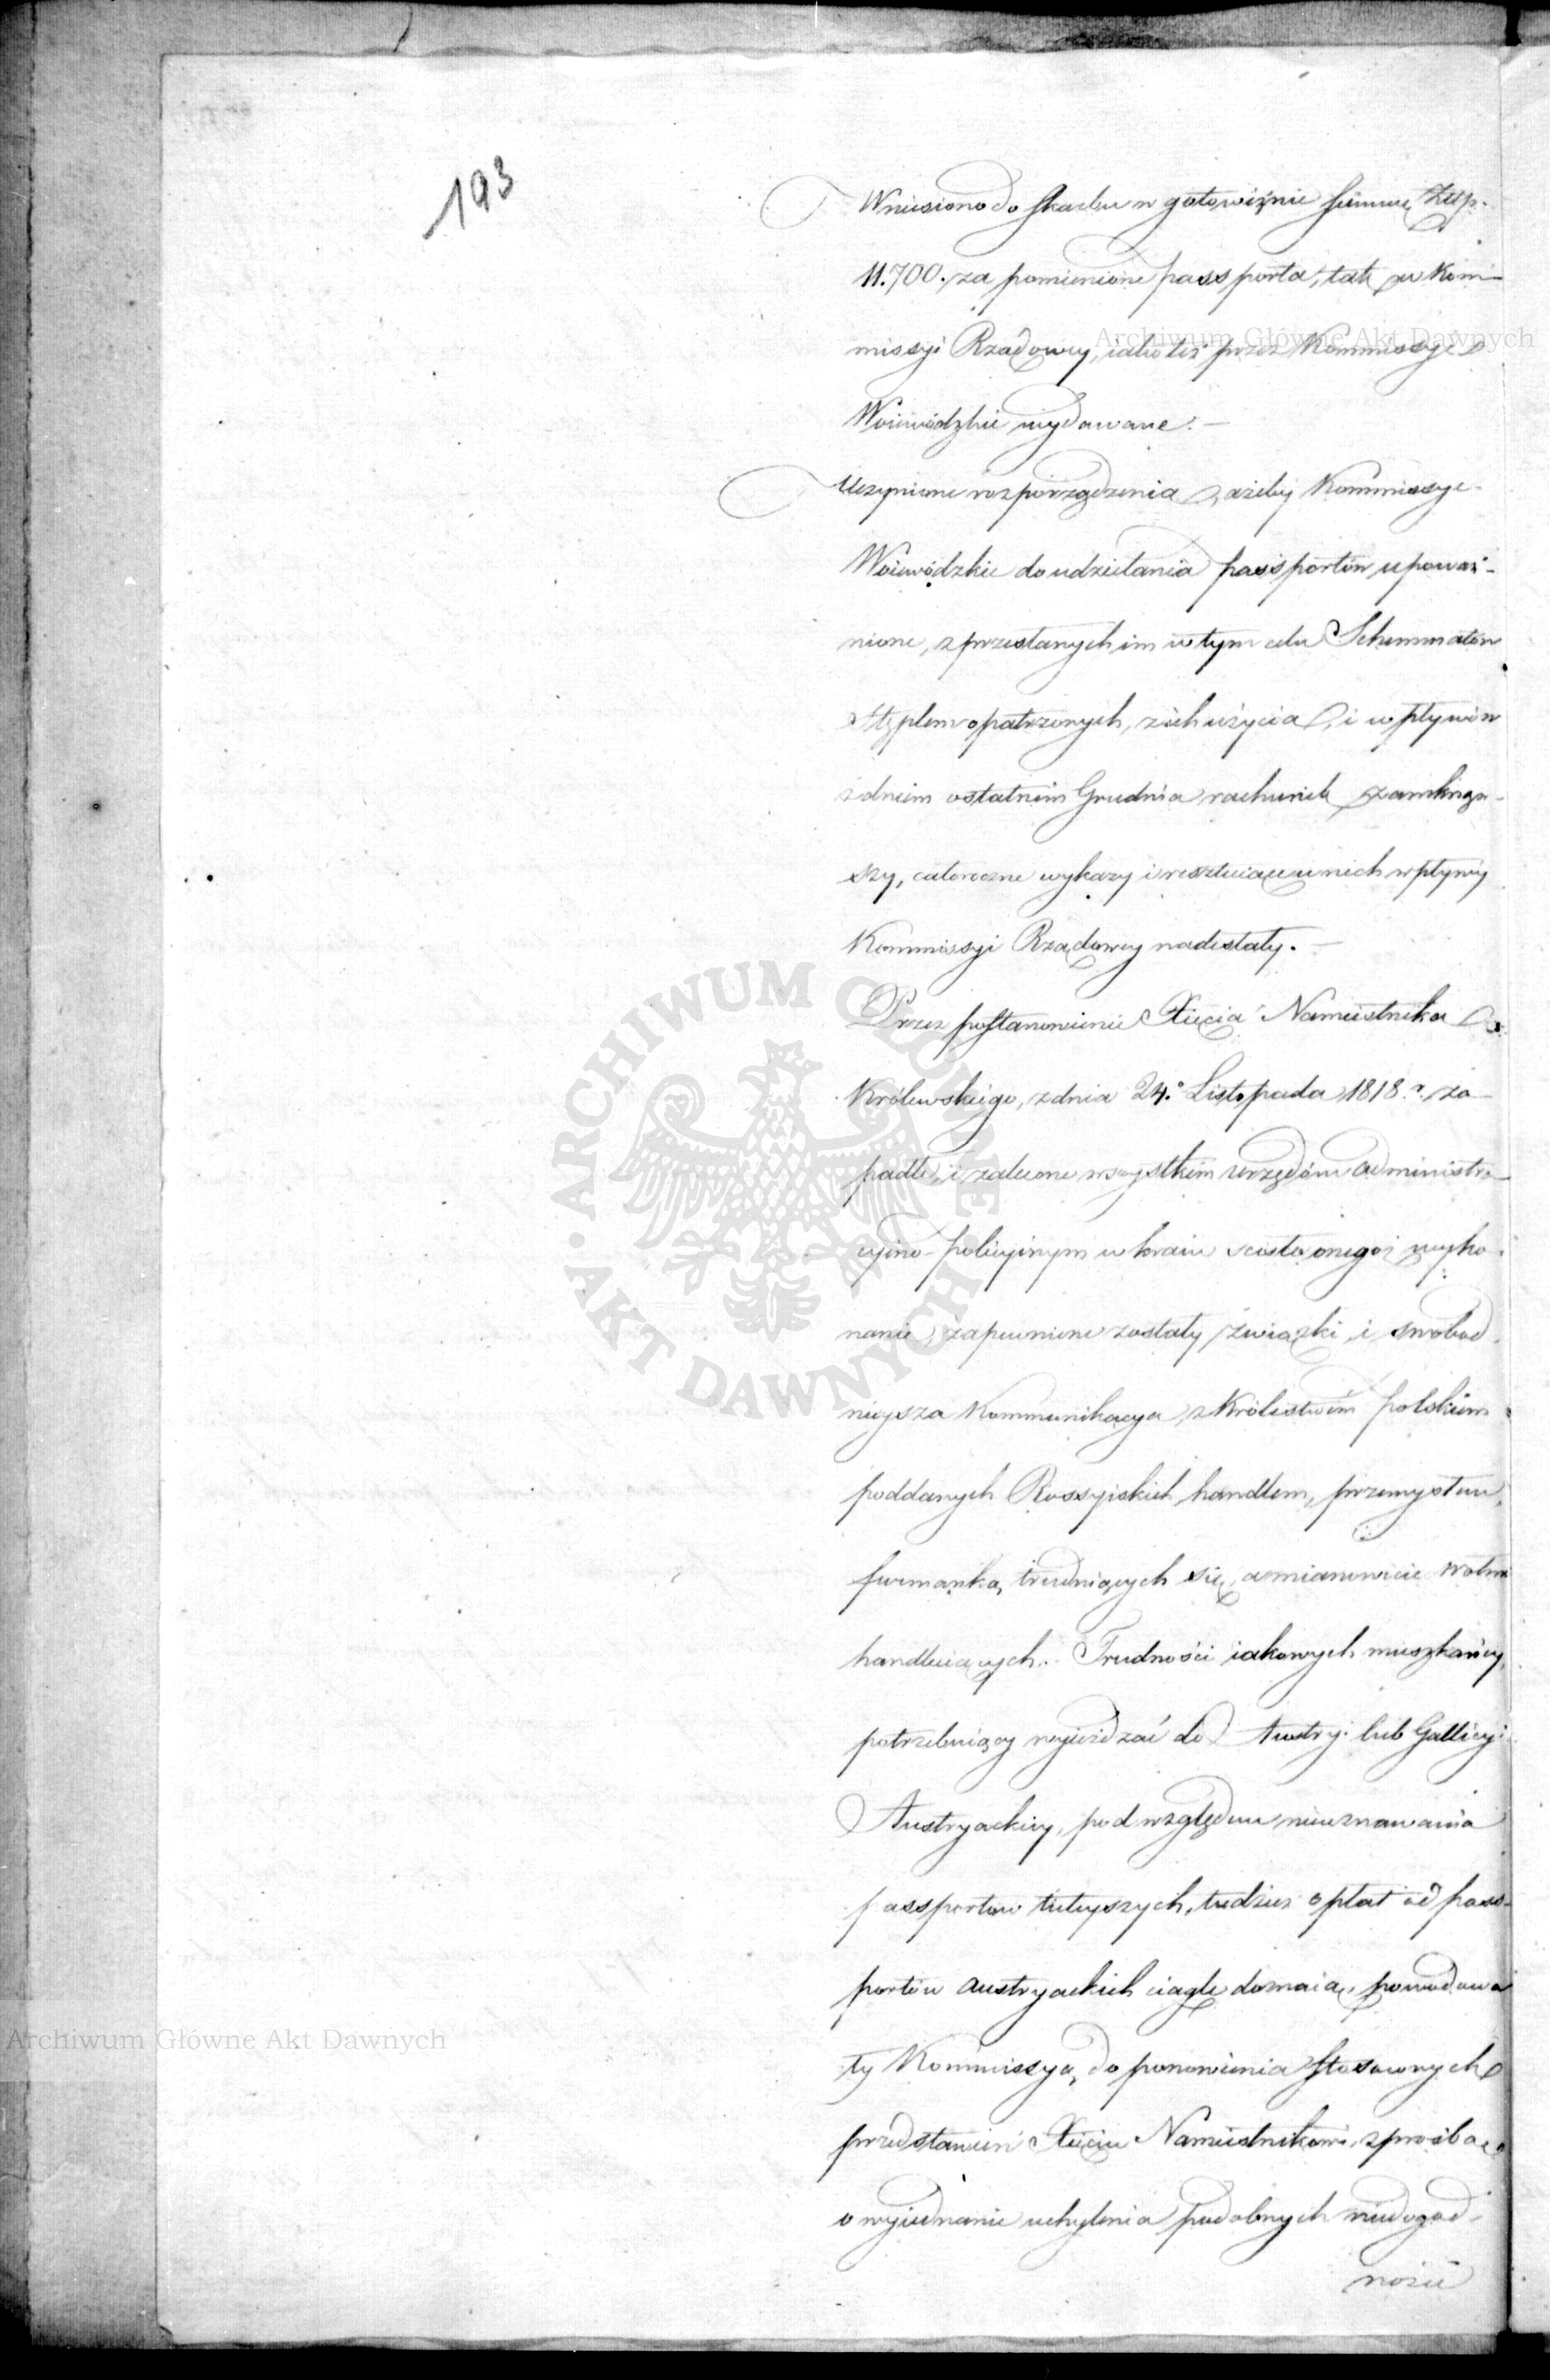 193
Wniesiono do skarbu w gotowiźnie summę Złlp.
11.700. za pomienione passporta, tak w Kom-
missyi Rządowey, iako też przez Kommissye
Woiewódzkie wydawane. —
Uczynione rozporządzenia, ażeby Kommissye
Woiewódzkie do udzielania passportów upoważ-
nione, z przesłanych im w tym celu Schemmatów
stęplem opatrzonych, z ich użycia, i wpływów
z dniem ostatnim Grudnia rachunek zamknąw-
szy, całoroczne wykazy i resztuiące u nich wpływy
Kommissyi Rządowey nadesłały. —
Przez postanowienie Xięcia Namiestnika
Królewskiego, z dnia 24.° Listopada 1818.r. za-
padłe, i zalecone wszystkim urzędóm administra-
cyino-policyinym w kraiu scisłe onegoż wyko-
nanie, zapewnione zostały związki, i swobod-
nieysza Kommunikacya z Królestwem polskiem
poddanych Rossyiskich handlem, przemysłem,
furmanką, trudniących się, a mianowicie wolno
handluiących. Trudności iakowych mieszkańcy,
potrzebuiący wyieżdzać do Austryi lub Gallicyi
Austryackiey, pod względem nieuznawania
passportów tuteyszych, tudzież opłat od pass-
portów austryackich ciągle doznaią, powodowa-
ły Kommissyą, do ponowienia stosownych
przedstawień Xięciu Namiestnikowi, z prośbą
o wyiednanie uchylenia podobnych niedogod-
ności
Archiwum Główne Akt Dawnych
ARCHIWUM GŁÓWNE
AKT DAWNYCH
Archiwum Główne Akt Dawnych